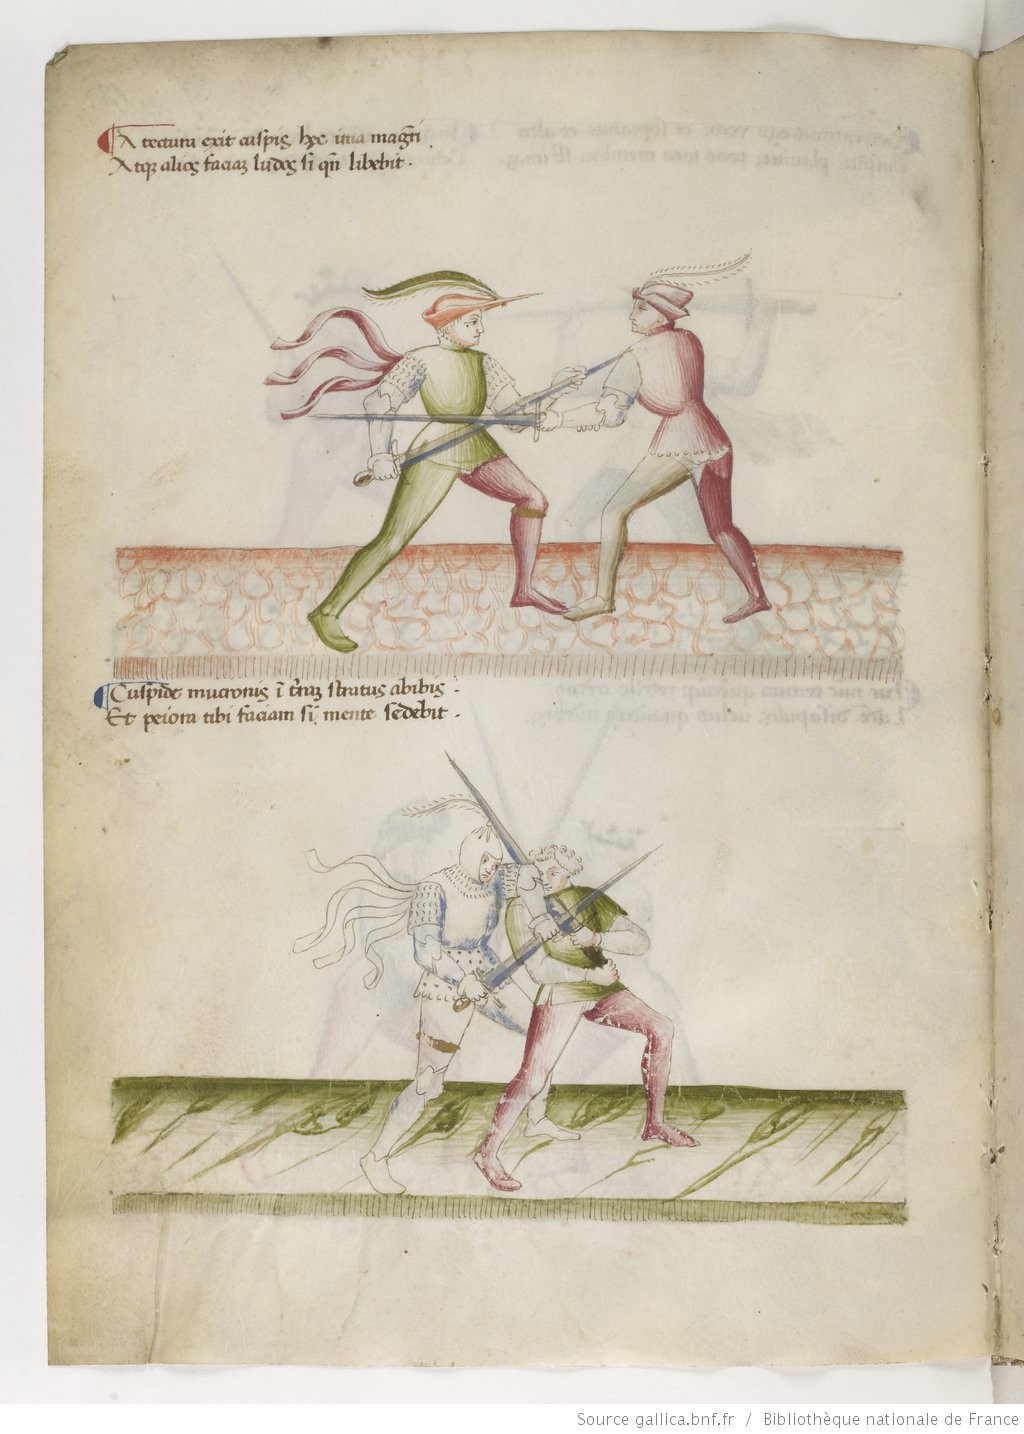 A tectura exit cuspis hec una magr̄i
Atqȝ alios faciaȝ ludos si qn̄ libebit.
Cuspide mucronis ī t̄raȝ stratus abibis.
Et peiora tibi faciam sī mente sedebit.
Source gallica.bnf.fr / Bibliothèque nationale de France